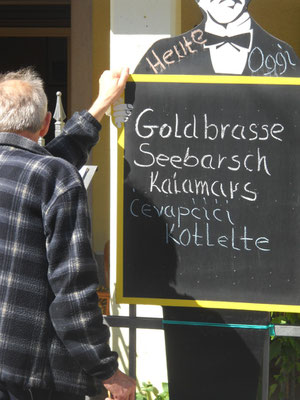 Heute
Oggi
Goldbrasse
Seebarsch
Kalamars
Cevapčići
Kotlette